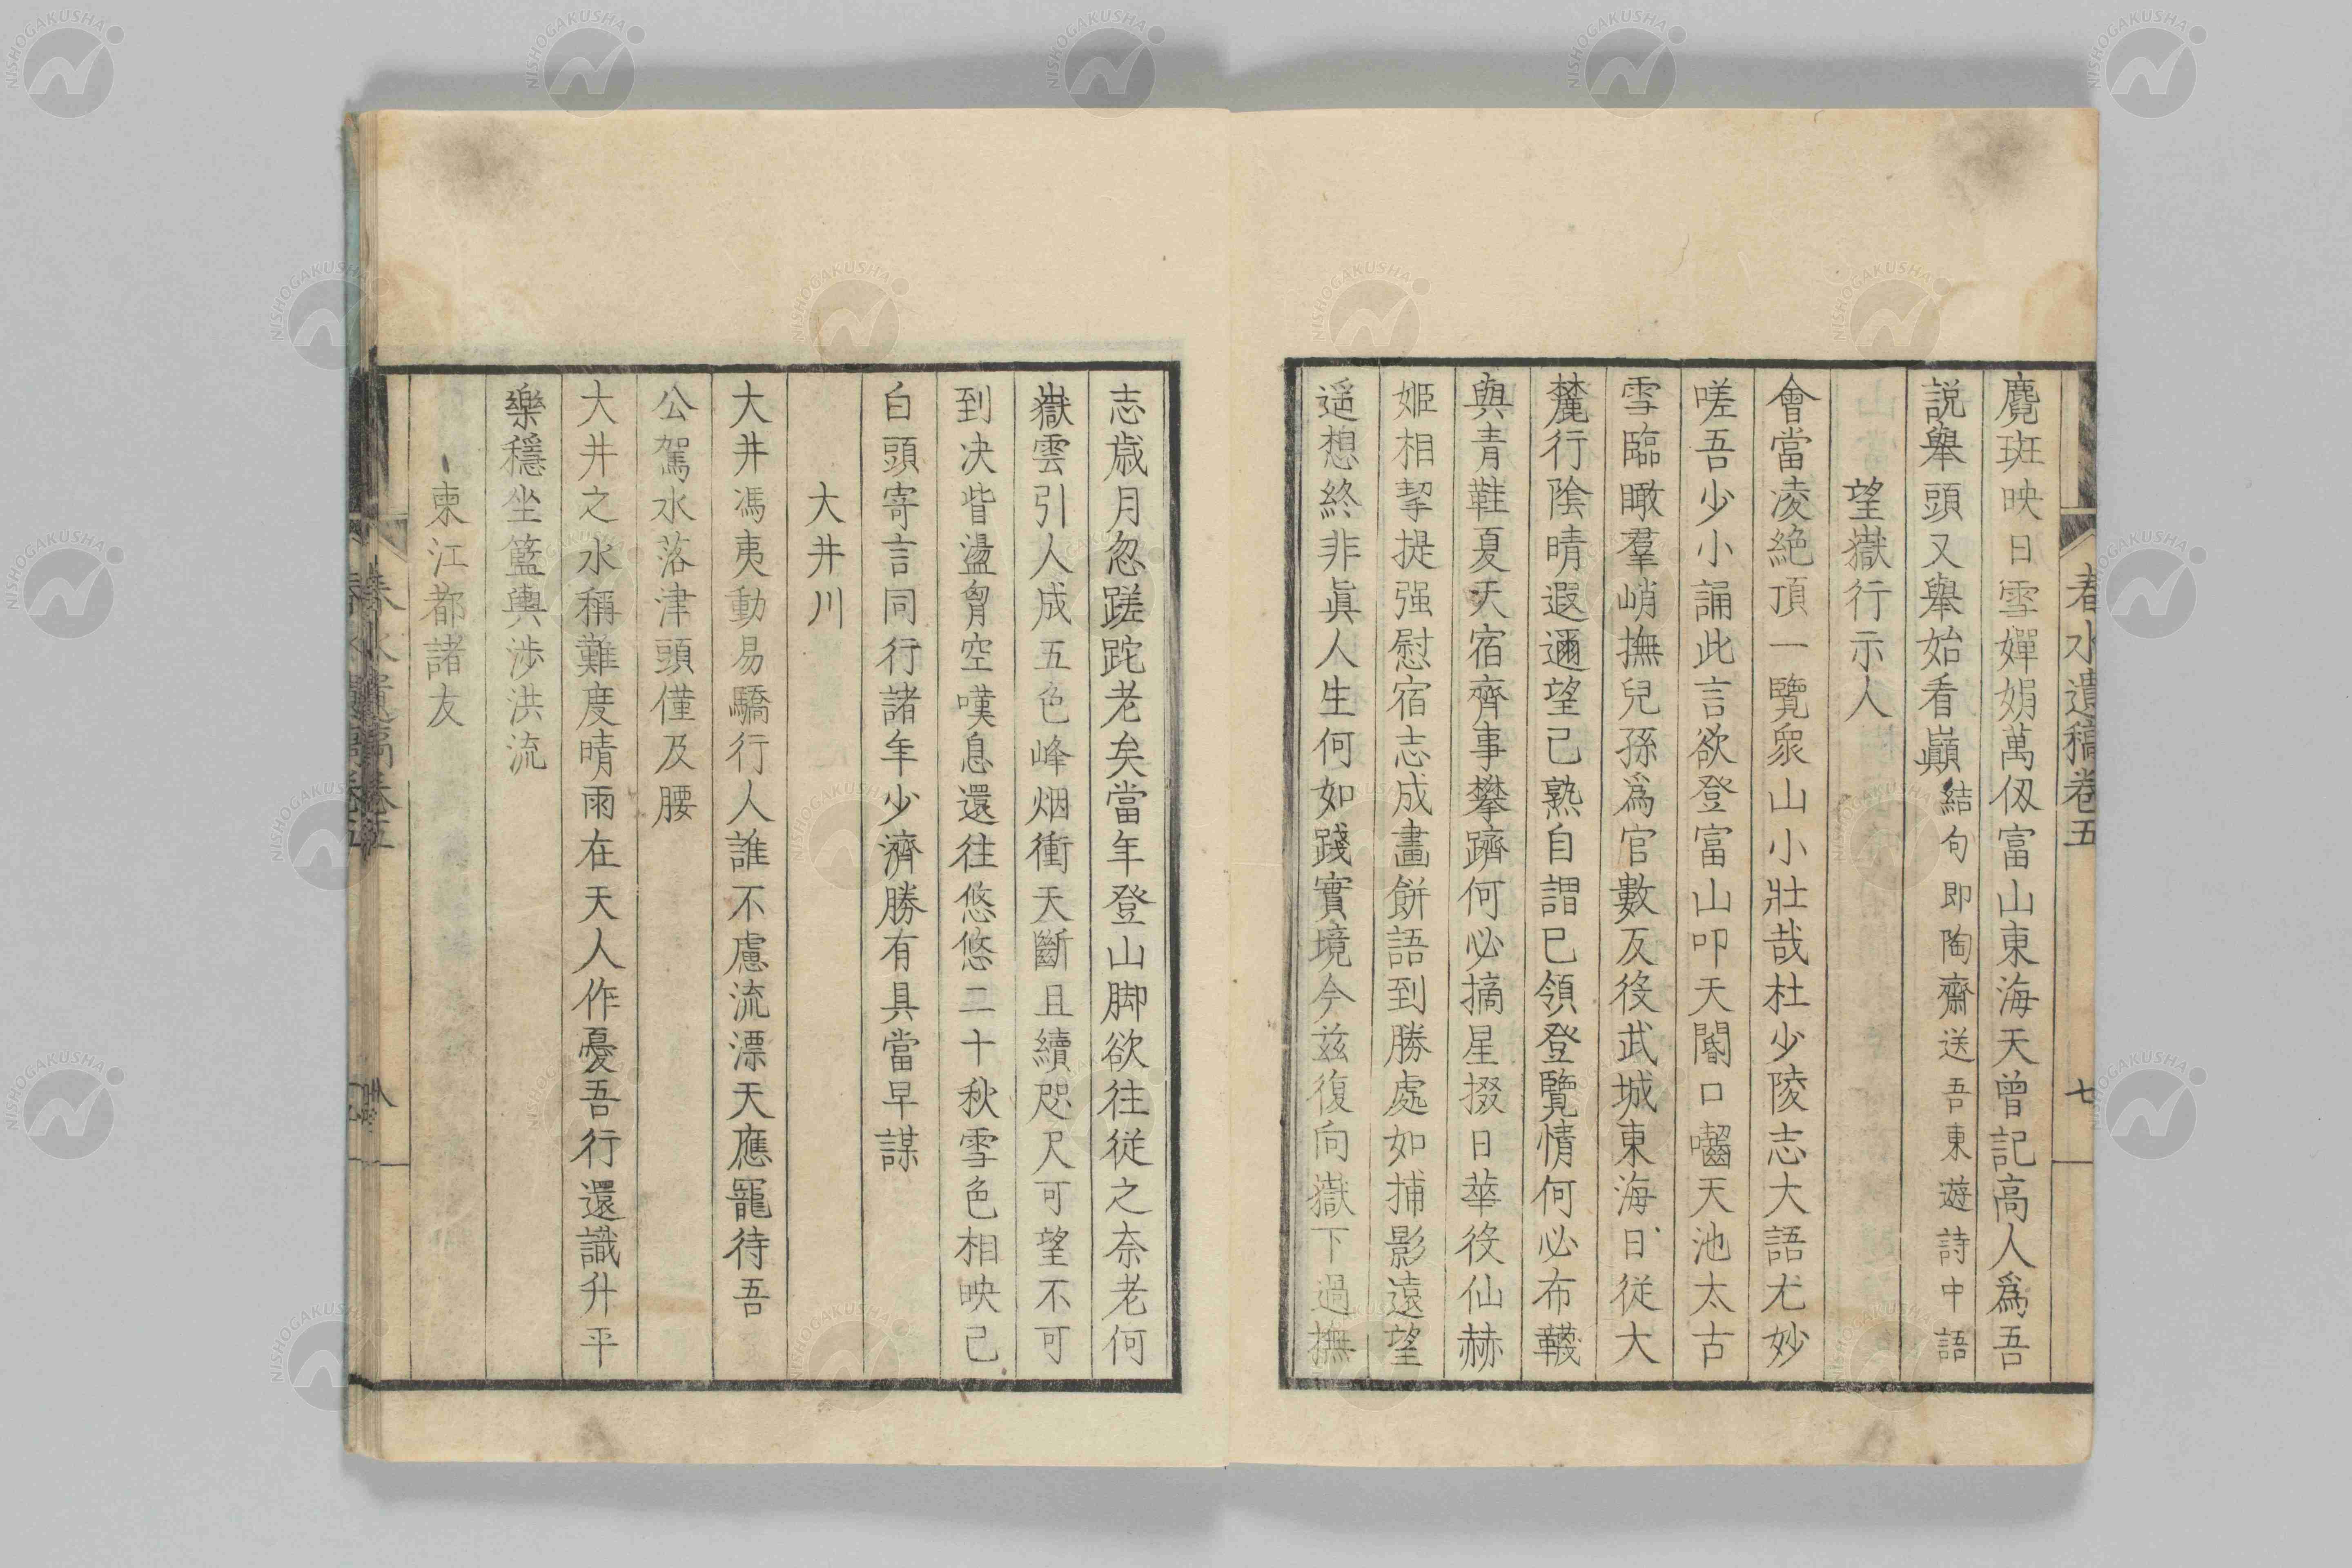 春水遺稿卷五
七
麑斑映日雪嬋娟萬仭富山東海天曾記高人爲吾
説舉頭又舉始看巓結句即陶齋送吾東遊詩中語
望嶽行示人
會當凌絶頂一覽衆山小壯哉杜少陵志大語尤妙
嗟吾少小誦此言欲登富山叩天閽口囓天池太古
雪臨瞰羣峭撫兒孫爲官數反役武城東海日從大
麓行陰晴遐邇望已熟自謂已領登覽情何必布韈
與青鞋夏天宿齊事攀躋何必摘星掇日華役仙赫
姫相挈提强慰宿志成畫餅語到勝處如捕影遠望
遥想終非眞人生何如踐實境今茲復向嶽下過撫
志歳月忽蹉跎老矣當年登山脚欲往從之奈老何
嶽雲引人成五色峰烟衝天斷且續咫尺可望不可
到决眥盪胷空嘆息還往悠悠二十秋雪色相映已
白頭寄言同行諸年少濟勝有具當早謀
大井川
大井馮夷動易驕行人誰不慮流漂天應寵待吾
公駕水落津頭僅及腰
大井之水稱難度晴雨在天人作憂吾行還識升平
樂穩坐籃輿渉洪流
柬江都諸友